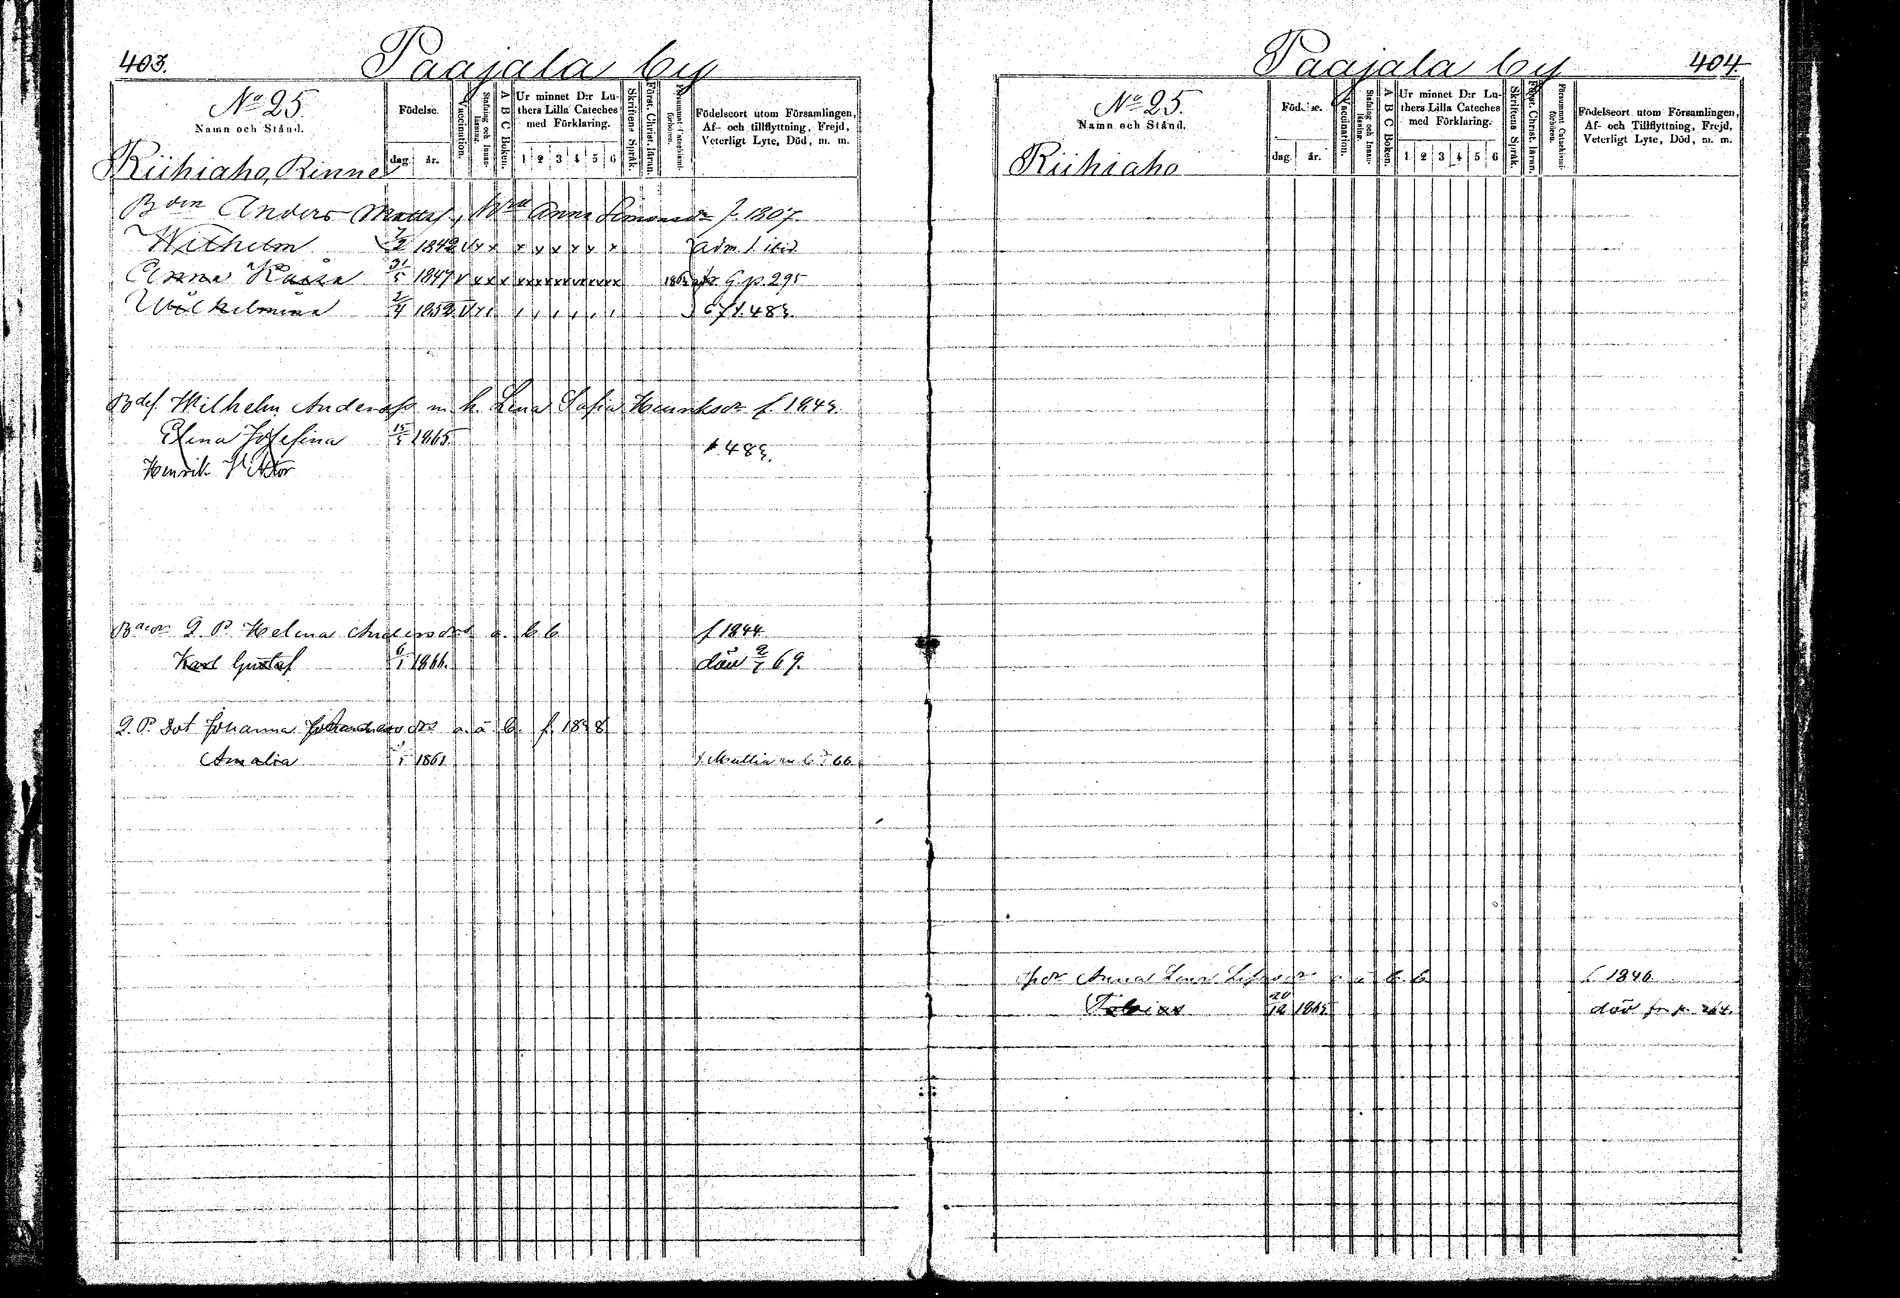 403.
Paajala by
No 25.
Namn och Stånd.
Födelse.
dag.
år.
Vaccination.
Stafning och Innan-läsning.
A B C Boken.
Ur minnet D:r Lu-
thers Lilla Cateches
med Förklaring.
1 2 3 4 5 6
Skriftens Språk.
Först. Christ. läran.
Försummat Catechismi-förhören.
Födelseort utom Församlingen,
Af- och tillflyttning, Frejd,
Veterligt Lyte, Död, m. m.
Riihiaho, Rinne
Anders Matts., Anna Simonsdr f. 1807
Wilhelm 7/2 1842 v x x x x x x x x
Anna Kaisa 31/5 1847 v x x x x x x x x x x x x x G. p. 295
Wilhelmina 2/4 1852 483.
Wilhelm Anderss m. h. Lena Sofia Henriksdr f. 1843.
Elina Josefina 15/5 1865
483.
Henrik Viktor
Q. P. Helena Andersdrs o. b. f. 1844
Karl Gustaf 6/1 1866. död 2/1 69.
Q. P. Dot Johanna o. ä. b. f. 1838
Amalia 1861
404
Paajala by
No 25.
Namn och Stånd.
Födelse.
dag.
år.
Vaccination.
Stafning och Innan-läsning
A B C Boken.
Ur minnet D:r Lu-
thers Lilla Cateches
med Förklaring.
1 2 3 4 5 6
Skriftens Språk.
Först. Christ. läran.
Försummat Catechismi-förhören.
Födelseort utom Församlingen,
Af- och Tillflyttning, Frejd,
Veterligt Lyte, Död, m. m.
Riihiaho
Anna Lena o. ä. b. f. 1846
Tobias 20/12 1865 död